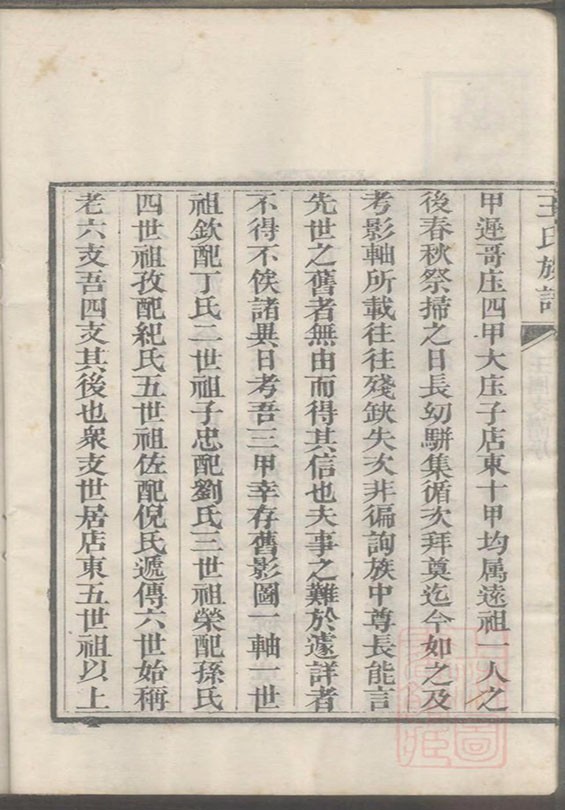 王氏族譜
甲遲哥庄四甲大庄子店東十甲均属遠祖一人之
後春秋祭掃之日長幼駢集循次拜奠迄今如之及
考影軸所載往往殘缺失次非徧詢族中尊長能言
先世之舊者無由而得其信也夫事之難於遽詳者
不得不俟諸異日考吾三甲幸存舊影圖一軸一世
祖欽配丁氏二世祖子忠配劉氏三世祖榮配孫氏
四世祖孜配紀氏五世祖佐配倪氏遞傳六世始稱
老六支吾四支其後也衆支世居店東五世祖以上